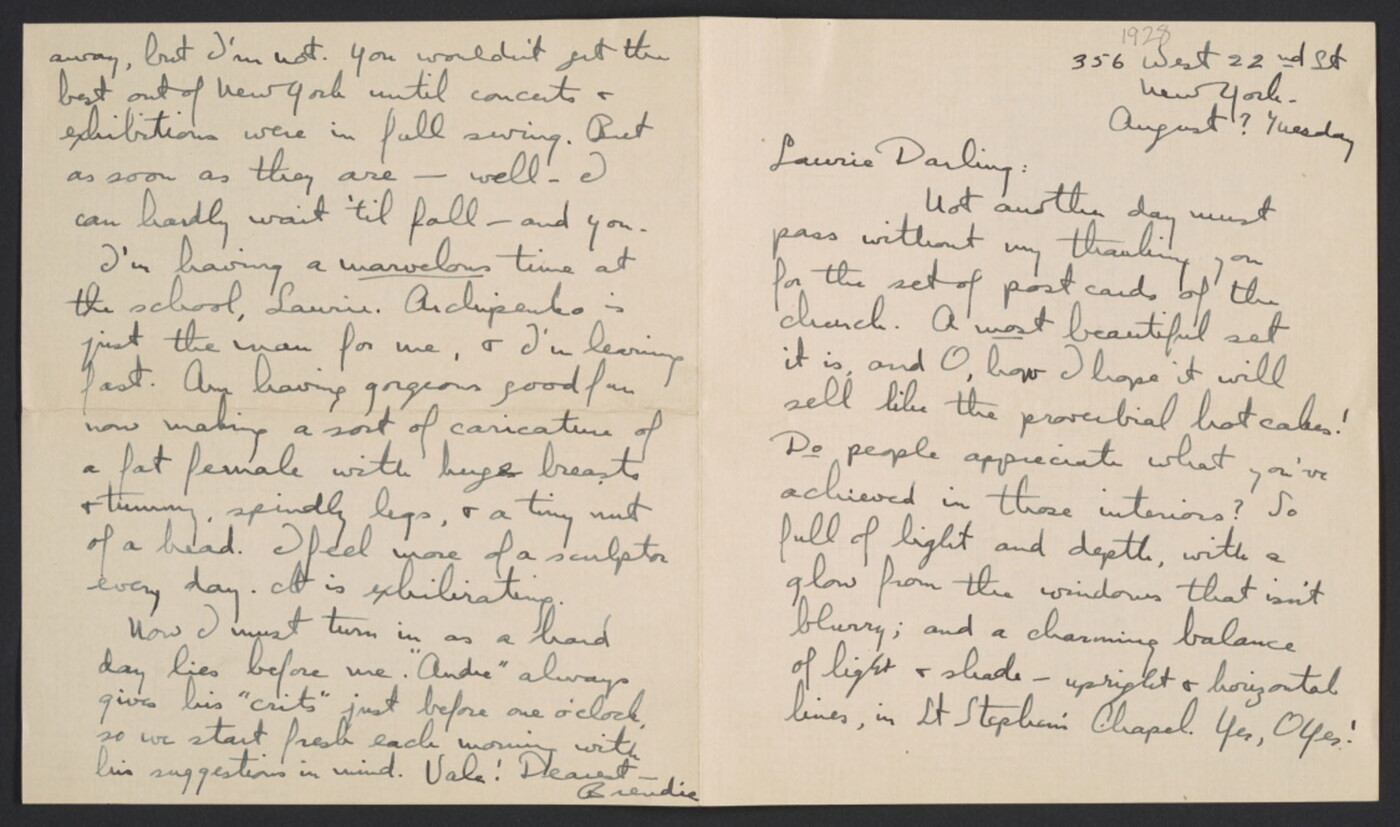 1928
356 West 22nd St
New York.
August ? Tuesday
Laurie Darling:
Not another day must
pass without my thanking you
for the set of post cards of the
church. A most beautiful set
it is, and O, how I hope it will
sell like the proverbial hot cakes!
Do people appreciate what you've
achieved in those interiors? So
full of light and depth, with a
glow from the windows that isn't
blurry; and a charming balance
of light & shade - upright & horizontal
lines, in St Stephen's Chapel. Yes, O Yes!
away, but I'm not. You wouldn't get the
best out of New York until concerts &
exhibitions were in full swing. But
as soon as they are — well - I
can hardly wait 'til fall - and you.
I'm having a marvelous time at
the school, Laurie. Archipenko is
just the man for me, & I'm learning
fast. Am having gorgeous good fun
now making a sort of caricature of
a fat female with huge breasts
& tummy, spindly legs, & a tiny nut
of a head. I feel more of a sculptor
every day. It is exhilirating.
Now I must turn in as a hard
day lies before me. "Andre" always
gives his "crits" just before one o'clock,
so we start fresh each morning with
his suggestions in mind. Vale! Dearest -
Brendie